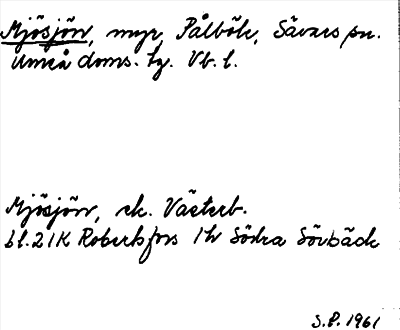 Mjösjön, myr, Pålböle, Sävars sn.
Umeå doms. tg. Vb. l.
Mjösjön, ek. Västerb.
bl. 21K Robertsfors 1h Södra Sövbäck
S.P. 1961